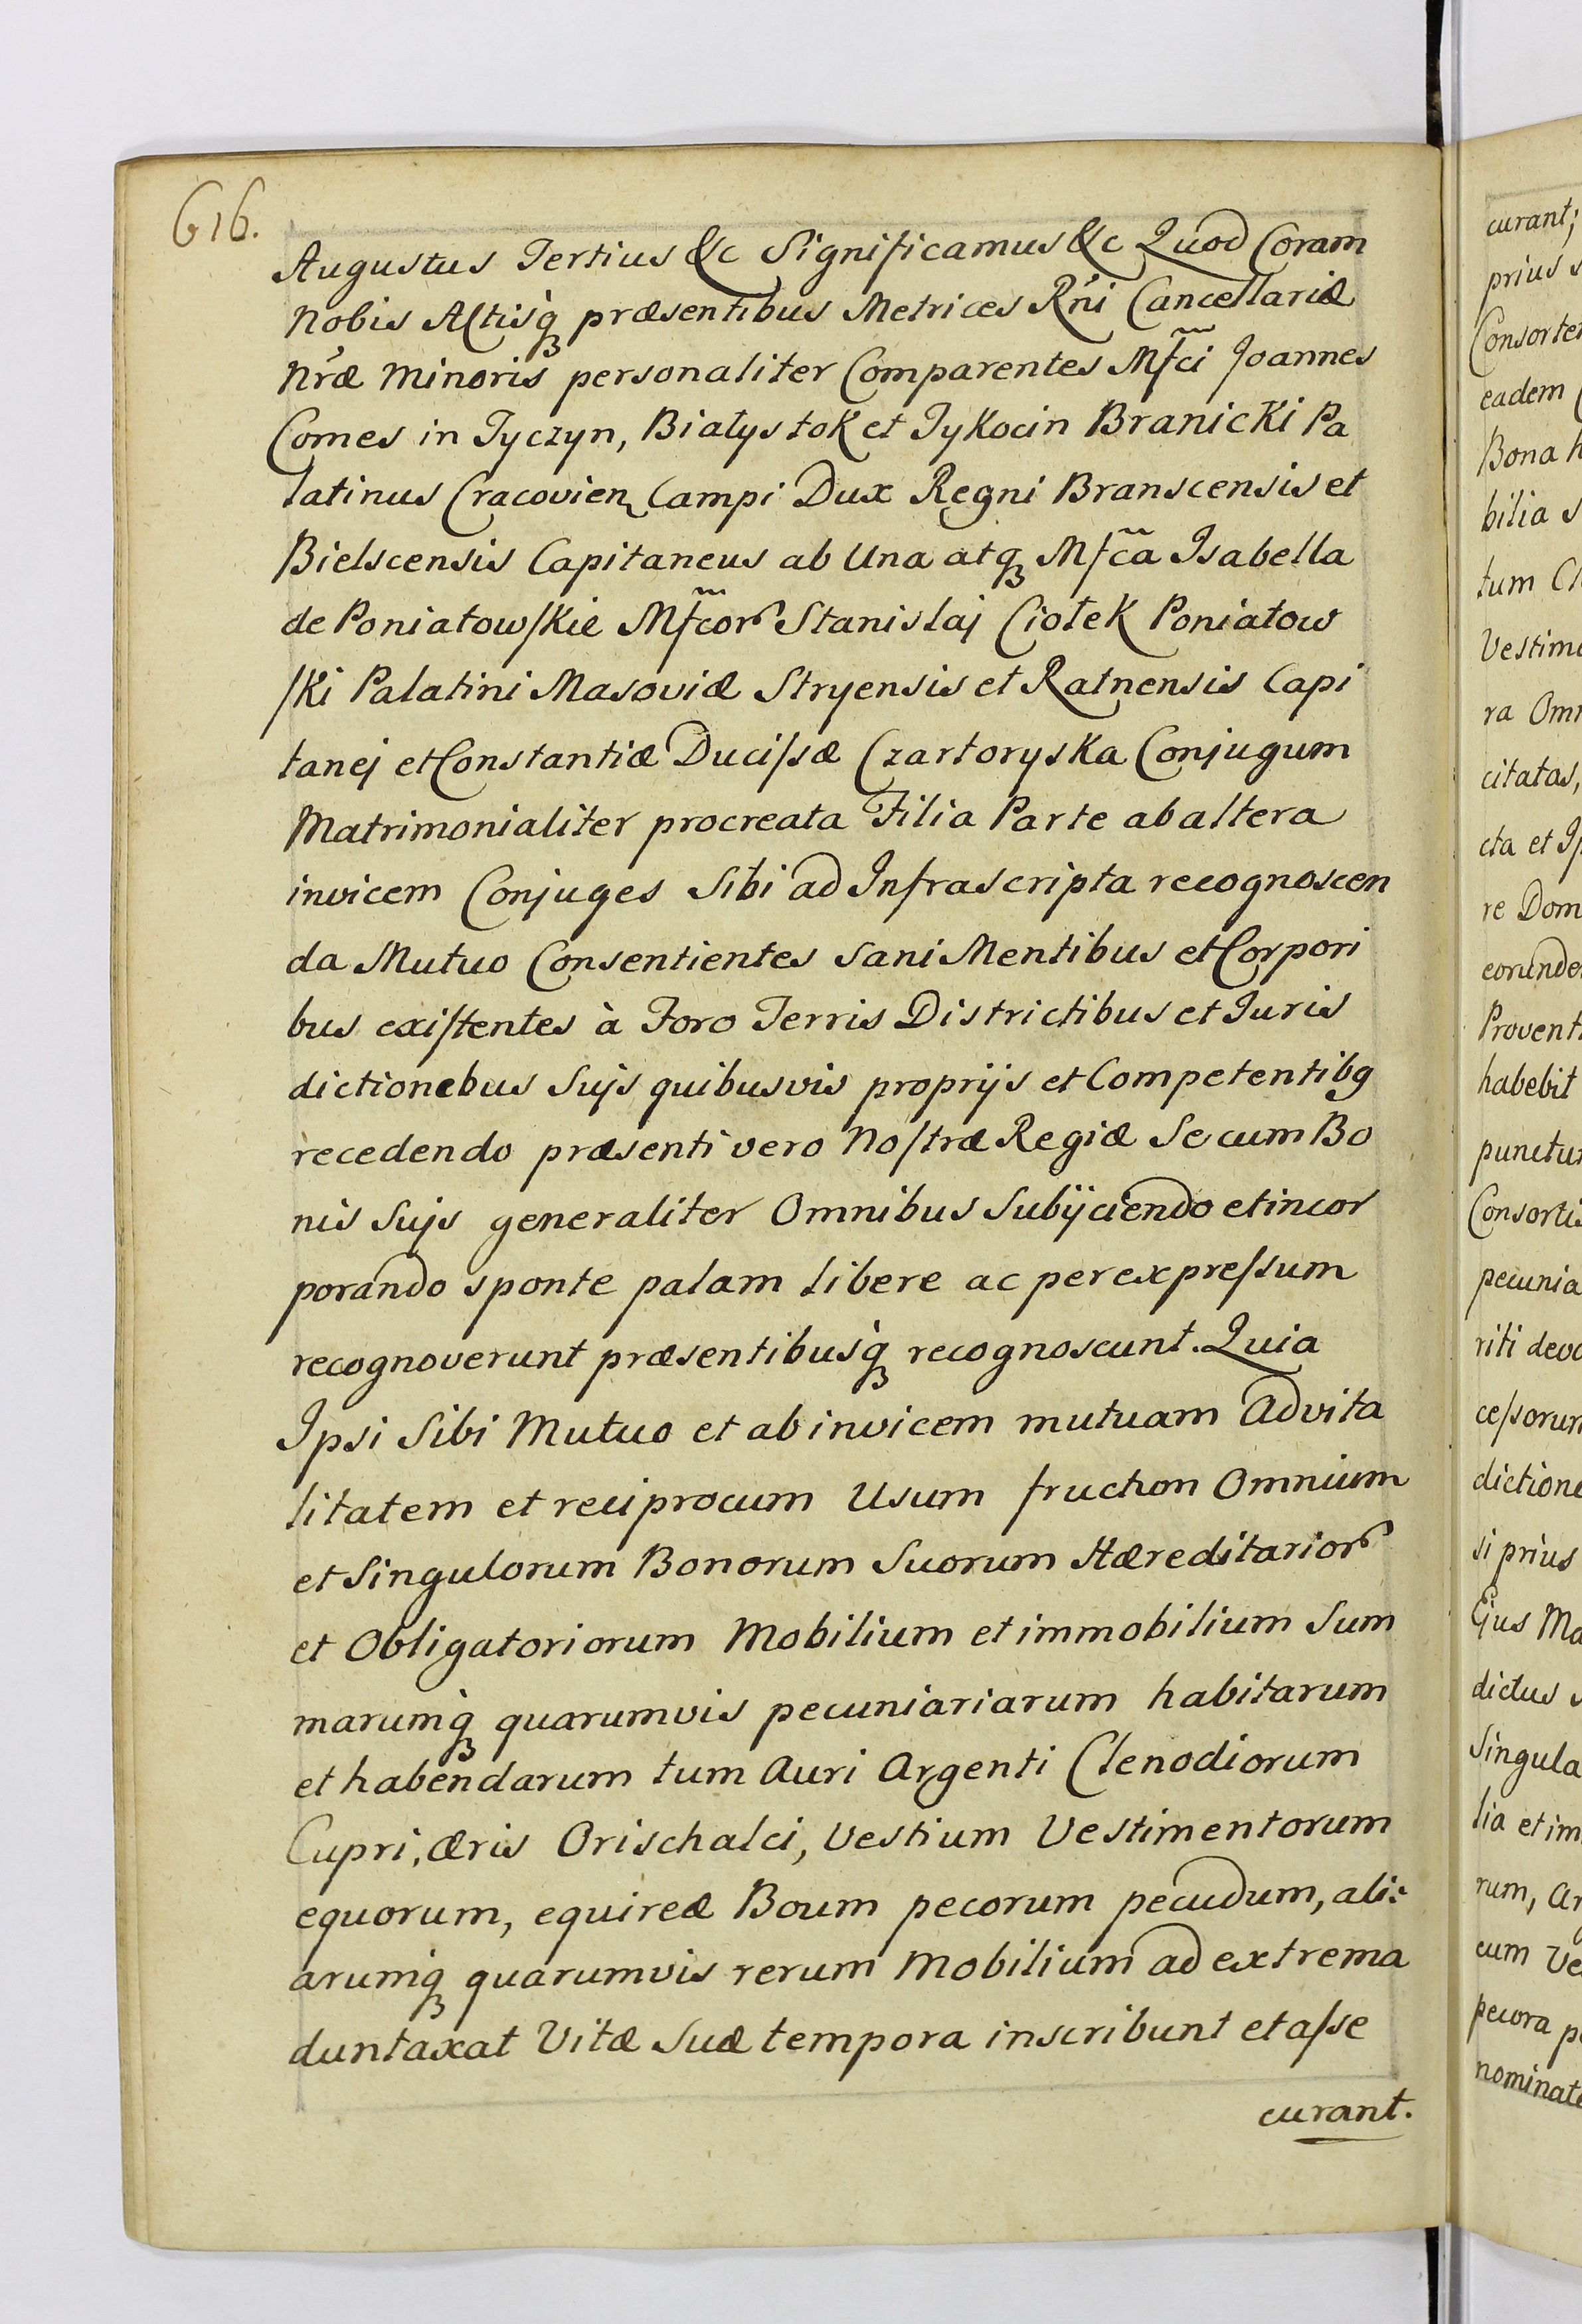 616.
Augustus Tertius &c Significamus &c Quod Coram
Nobis Actisq́ꝫ præsentibus Metrices Rńi Cancellariæ
Nŕæ Minoris personaliter Comparentes Mf̃ci Joannes
Comes in Tyczyn, Białystok et Tykocin Branicki Pa
latinus Cracovien Campi Dux Regni Branscensis et
Bielscensis Capitaneus ab Una atqꝫ Mfc̃a Isabella
de Poniatowskie Mf̃cor Stanislaj Ciołek Poniatow
ski Palatini Masoviæ Stryensis et Ratnensis Capi
tanej et Constantiæ Ducissæ Czartoryska Conjugum
Matrimonialiter procreata Filia Parte ab altera
invicem Conjuges Sibi ad Infrascripta recognoscen
da Mutuo Consentientes Sani Mentibus et Corpori
bus existentes à Foro Terris Districtibus et Juris
dictionebus Suis quibusvis proprijs et Competentibꝯ
recedendo præsenti vero Nostræ Regiæ Se cum Bo
nis Suis generaliter Omnibus Subijciendo et incor
porando sponte palam libere ac per expressum
recognoverunt præsentibusq́ꝫ recognoscunt. Quia
Ipsi Sibi Mutuo et ab invicem mutuam Advita
litatem et reciprocum Usum fruction Omnium
et Singulorum Bonorum Suorum Hæreditarior
et Obligatoriorum Mobilium et immobilium Sum
marumq́ꝫ quarumvis pecuniariarum habitarum
et habendarum tum Auri Argenti Clenodiorum
Cupri, æris Orischalci, Vestium Vestimentorum
equorum, equireæ Boum pecorum pecudum, ali:
arumq́ꝫ quarumvis rerum Mobilium ad extrema
duntaxat Vitæ Suæ tempora inscribunt et asse
curant.
curant;
prius
eadem
Bona
bilia
tum
ra
citatas,
cta et
re
habebit
ceſsorum
si prius
Ejus
dictus
Singula
lia et im
rum,
cum
pecora